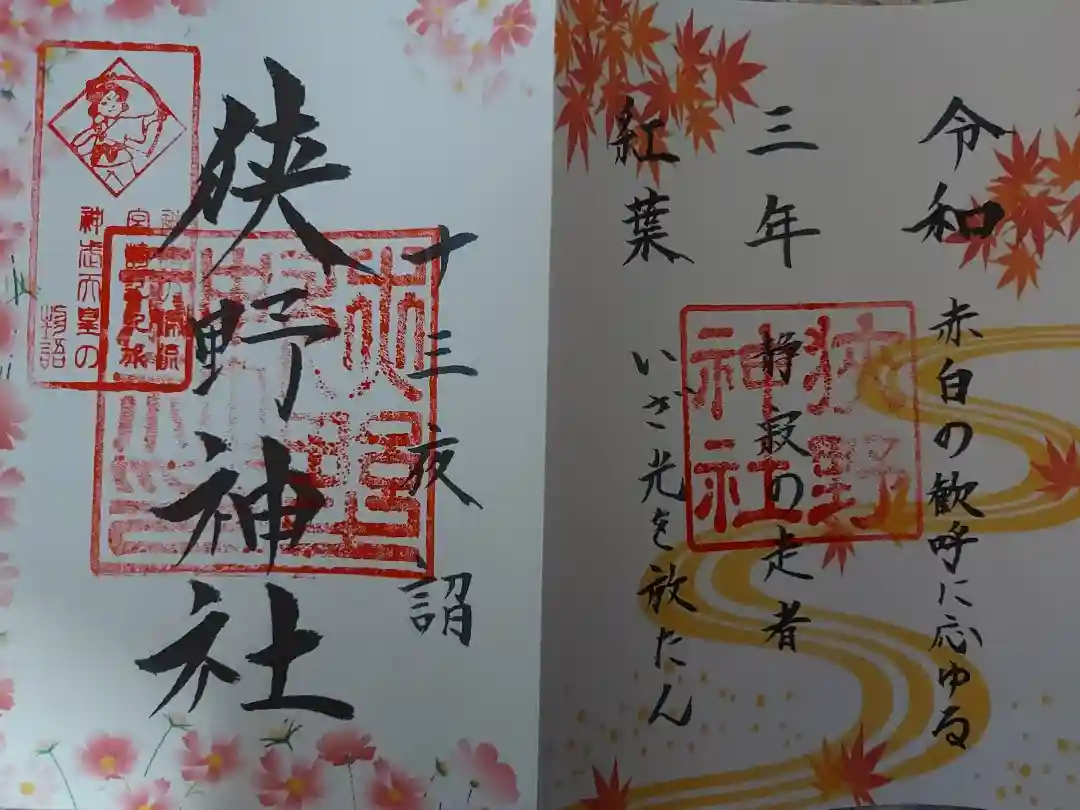 令和
三年
紅葉
赤白の歓呼に応ゆる
静寂の走者
いざ光を放たん
狭野
神社
十三夜、詣
狭野神社
神武天皇の
物語